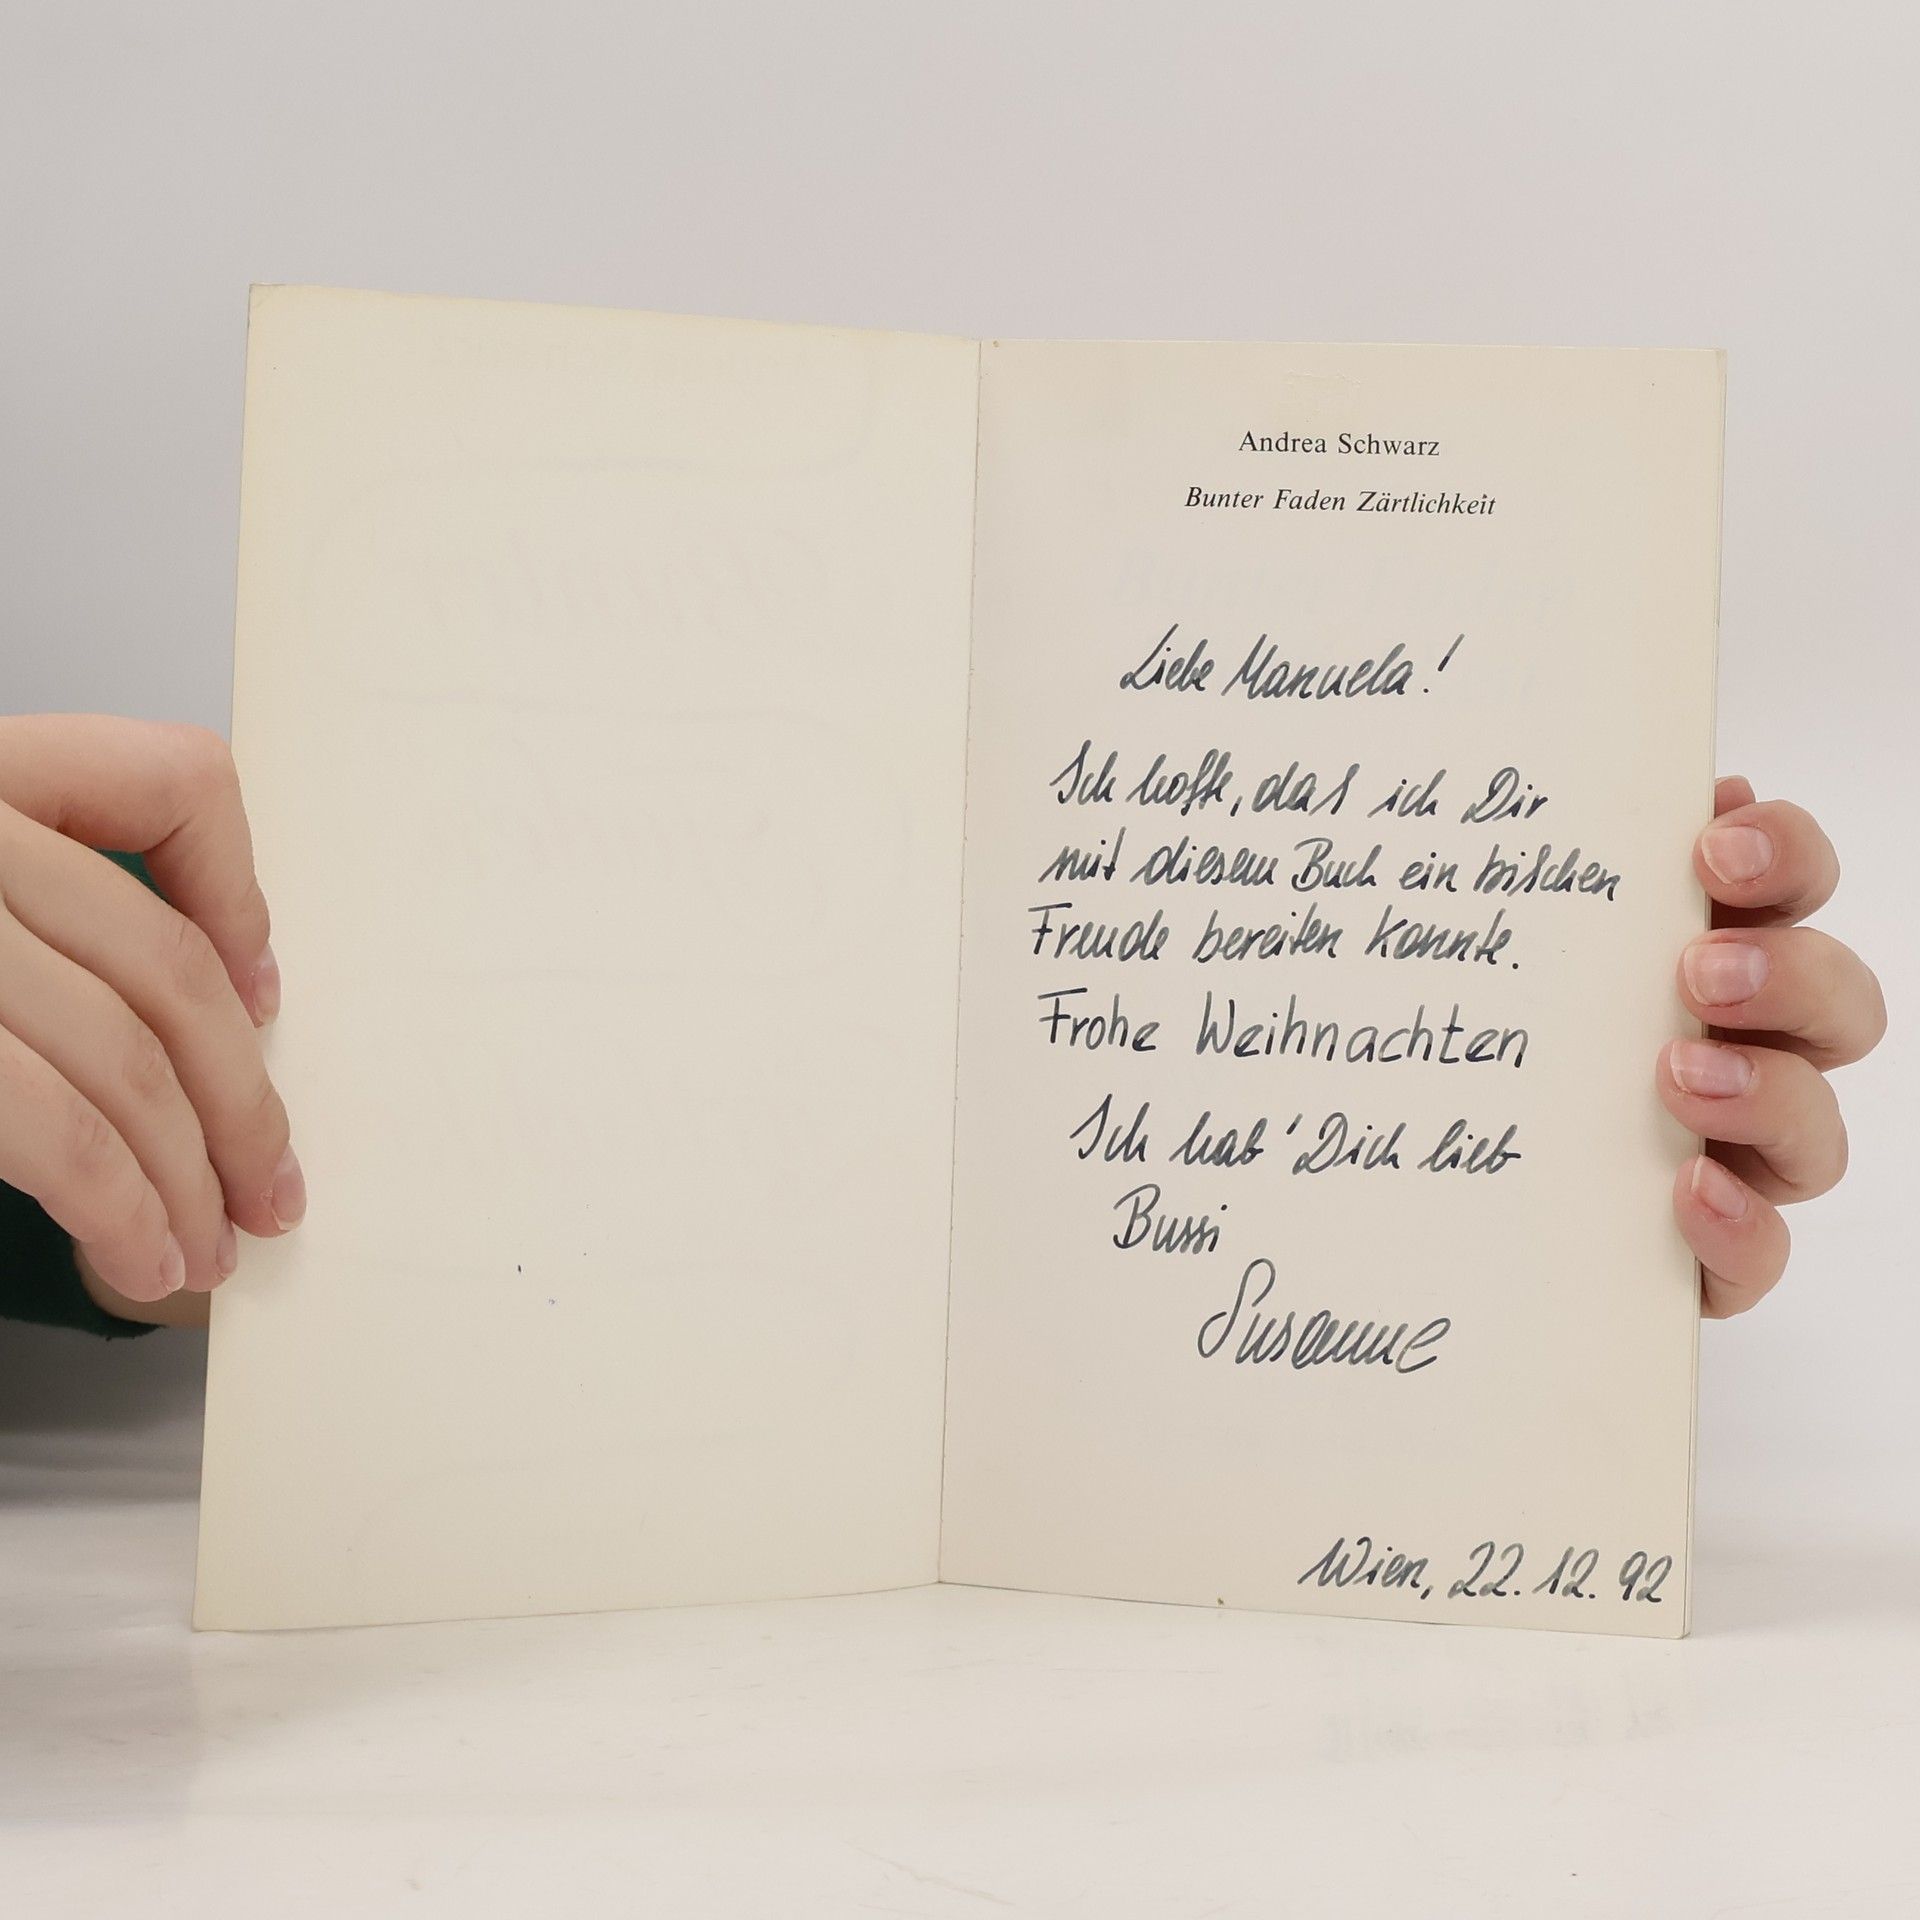 Andrea Schwarz
Bunter Faden Zärtlichkeit
Liebe Manuela!
Ich hoffe, daß ich Dir
mit diesem Buch ein bißchen
Freude bereiten konnte.
Frohe Weihnachten
Ich hab' Dich lieb
Bussi
Susanne
Wien, 22.12.92